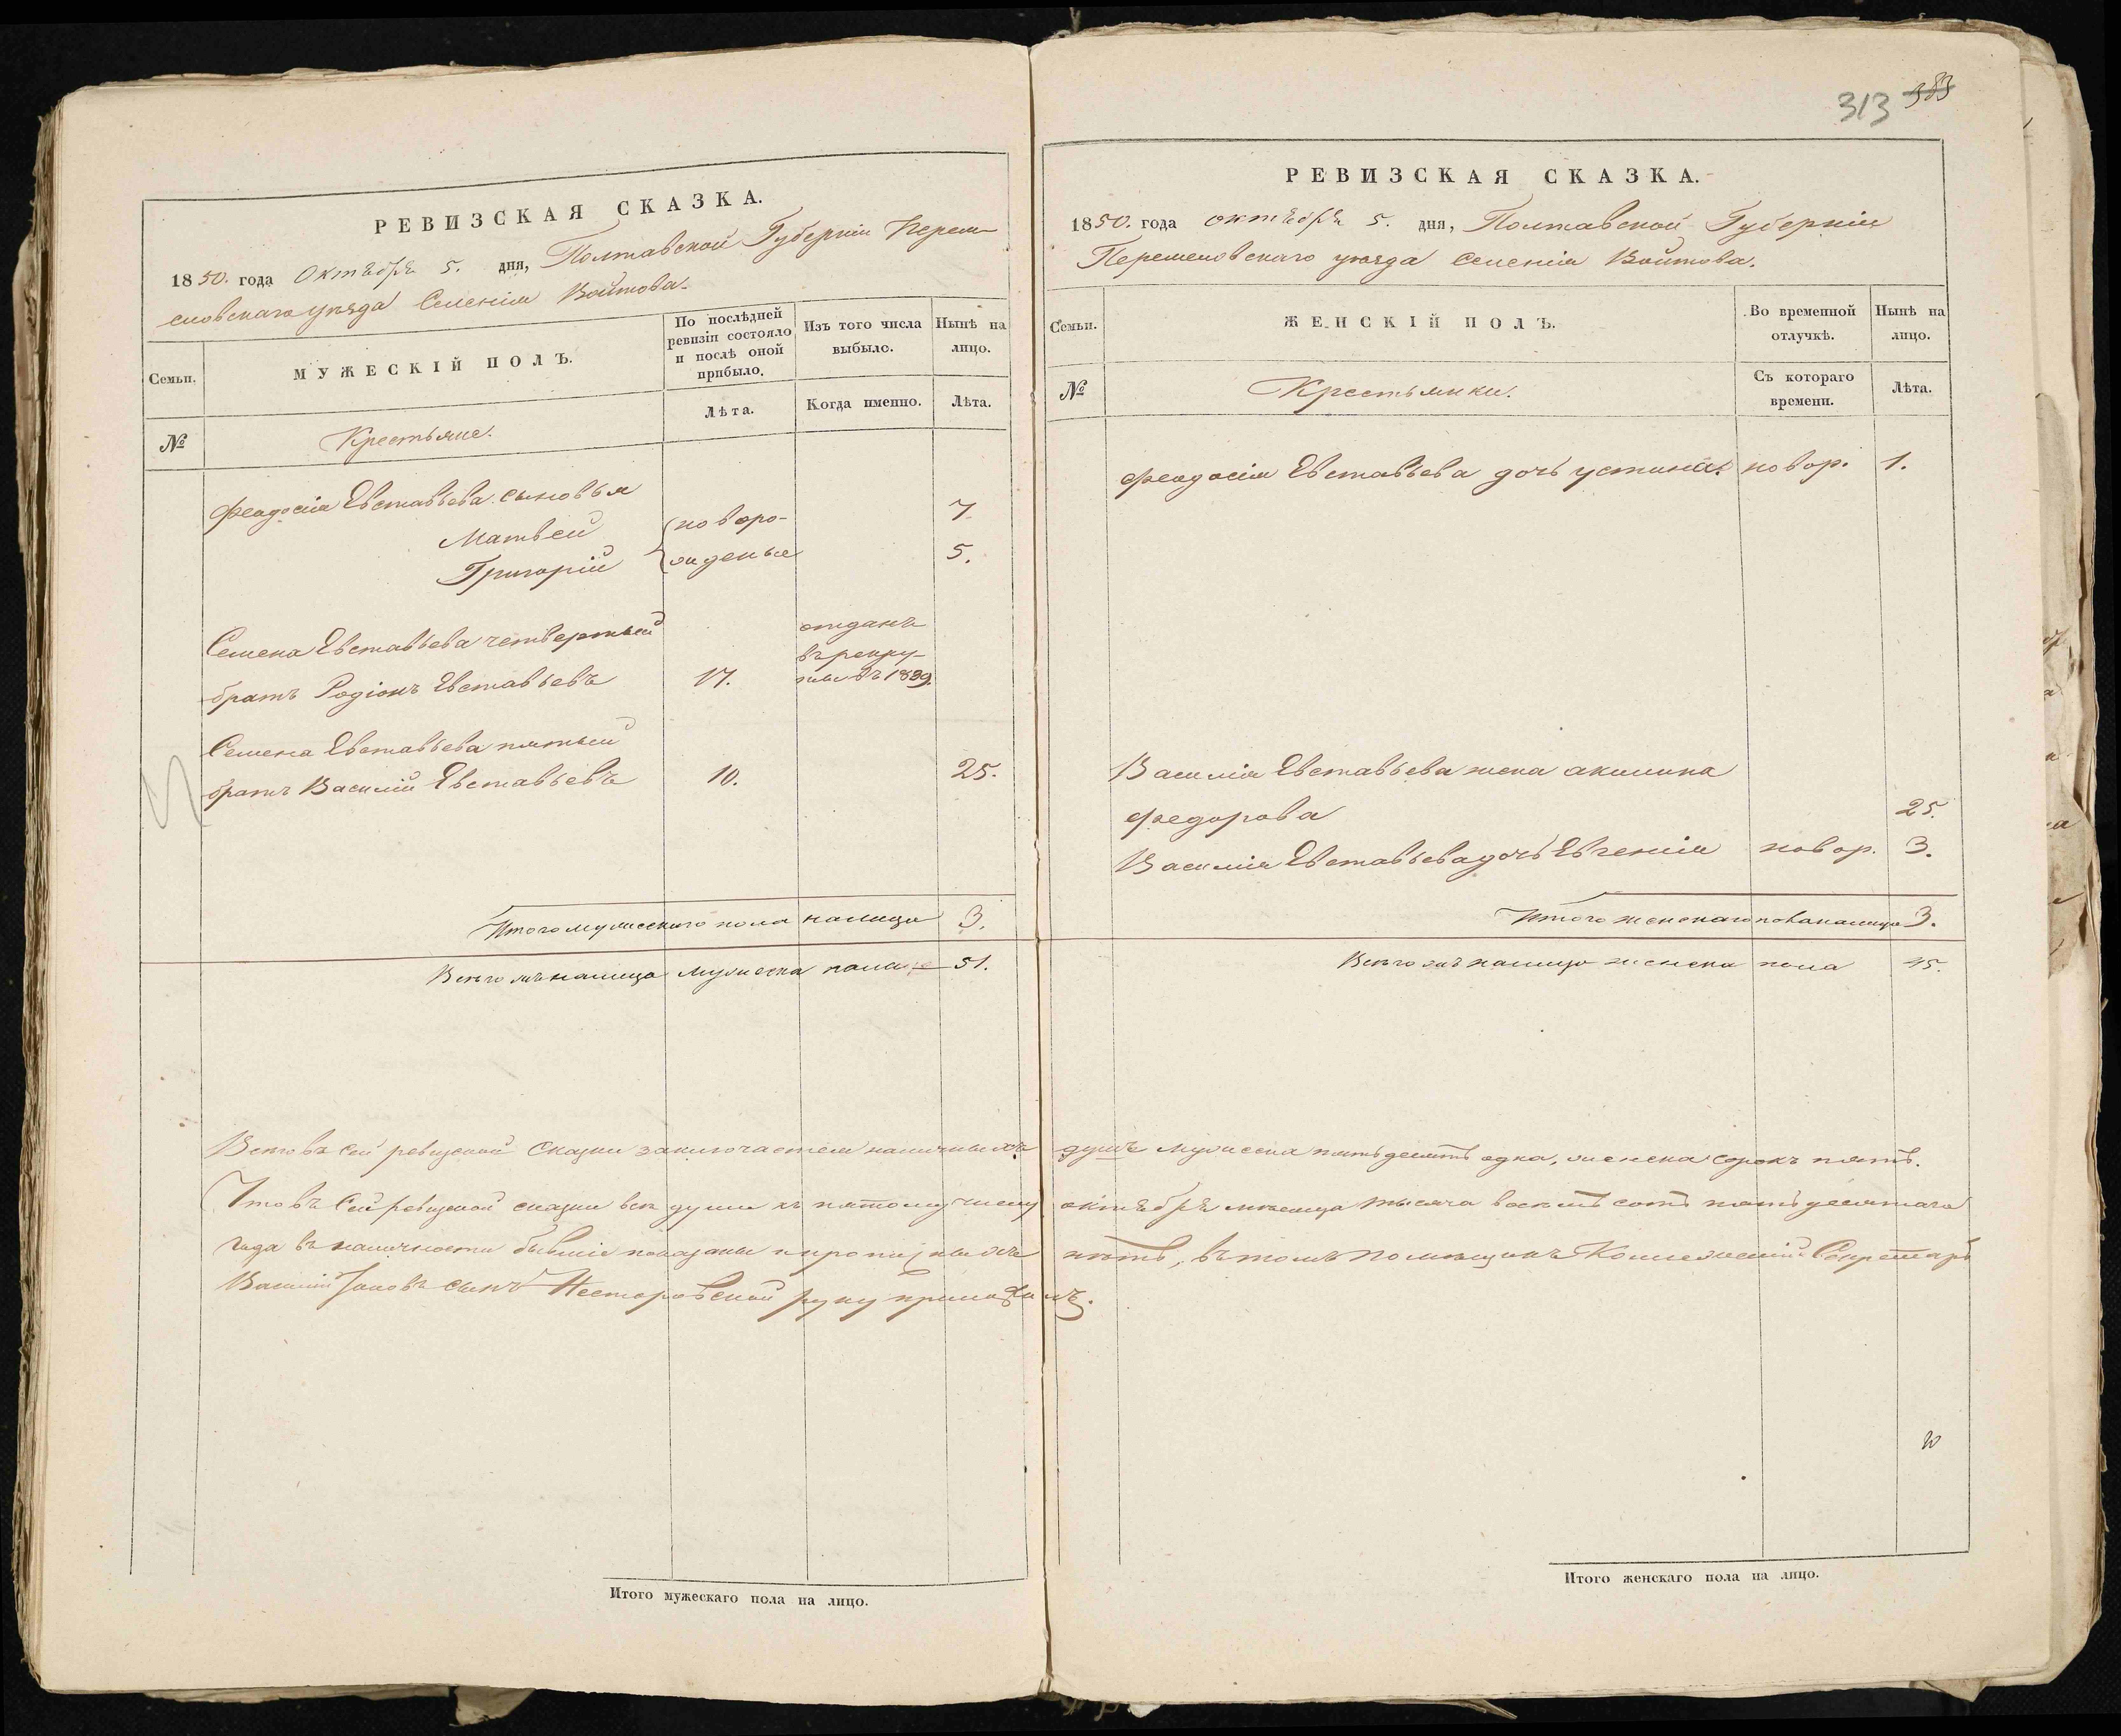 РЕВИЗСКАЯ СКАЗКА.
1850. года Октября 5. дня, Полтавской Губерніи Переяс-
словскаго уѣзда Селенія Войтова.
Семьи.
МУЖЕСКІЙ ПОЛЪ.
По послѣдней ревизіи состояло и послѣ оной прибыло.
Изъ того числа выбыло.
Нынѣ на лицо.
№
Крестьяне.
Лѣта.
Когда именно.
Лѣта.
Феодосія Евставьева сыновья
Матвей новоро- 7
Григорій жденые 5.
Семена Евставьева четвертый отданъ
братъ Родіонъ Евставьевъ 17. въ рекру-
ты въ 1839.
Семена Евставьева пятый
братъ Василій Евставьевъ 10. 25.
Итого мужескаго пола налицо 3.
Всего жъ налицо мужеска пола 51.
313 383
РЕВИЗСКАЯ СКАЗКА.
1850. года октября 5. дня, Полтавской Губерніи
Переясловскаго уѣзда Селенія Войтова.
Семьи.
ЖЕНСКІЙ ПОЛЪ.
Во временной отлучкѣ.
Нынѣ на лицо.
№
Крестьянки.
Съ котораго времени.
Лѣта.
Феодосія Евставьева дочь устинія новор. 1.
Василія Евставьева жена акилина
федорова 25.
Василія Евставьева дочь Евгенія новор. 3.
Итого женскаго пола налицо 3.
Всего жъ налицо женска пола 45.
Всего въ сей ревизской Сказки заключается наличныхъ душъ мужеска пятьдесятъ одна, женска сорокъ пять.
Что въ Сей ревизской сказки всѣ души къ пятому числу октября мѣсяца тысяча восемь сотъ пятьдесятаго
года въ наличности бывшіе показаны и прописныхъ нѣтъ, въ томъ помѣщикъ Коллежскій Секретарь
Василій Іаковъ сынъ Несторовской руку приложилъ.
Итого мужескаго пола на лицо.
Итого женскаго пола на лицо.